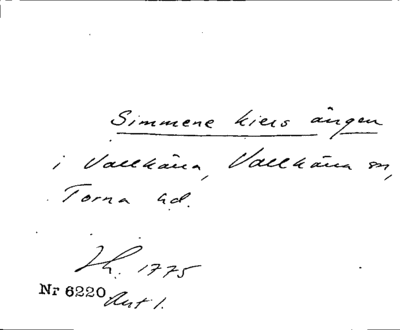 Simmene kiers ängen
i Vallkärra, Vallkärra sn,
Torna hd.
Lh. 1775
Nr 6220 Akt 1.